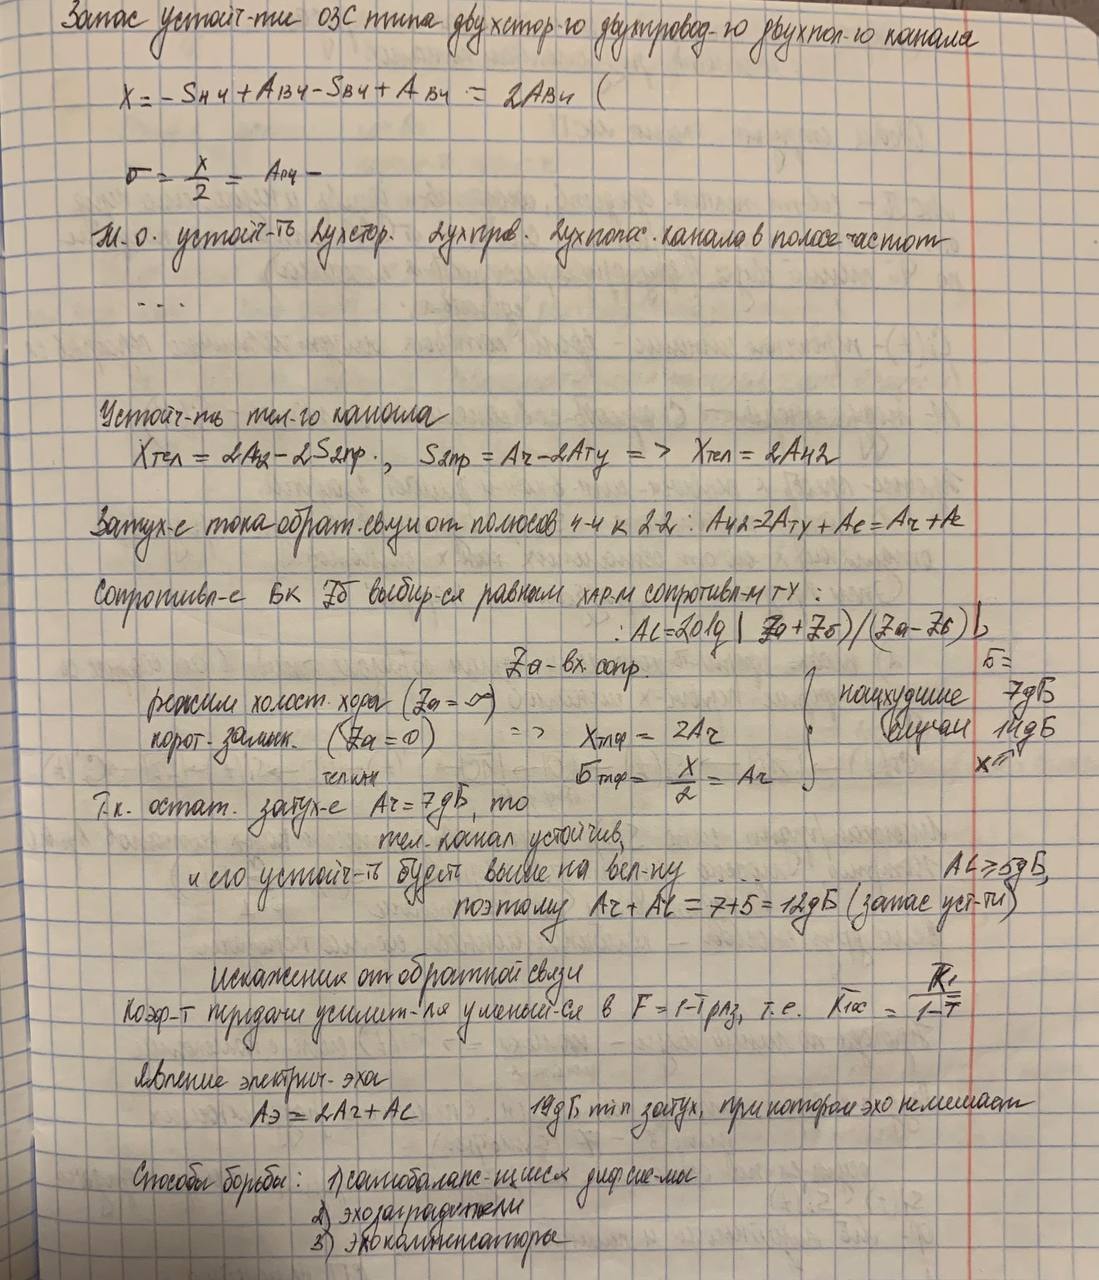 Запас устойч-ти ОЗС типа двухстор-го двухпровод-го двухпол-го канала
X = -Sнч + Aвч - Sвч + Aвч = 2Aвч (
σ = X/2 = Aвч -
Т.о. устойч-ть 2ухстор. 2ухпров. 2ухполос. канала в полосе частот
...
Устойч-ть тел-го канала
Xтел = 2A42 - 2S2пр., S2пр = Ar - 2Aту => Xтел = 2A42
Затух-е тока обрат. связи от полюсов 4-4 к 2-2: A42=2Aту + Ae = Ar + Ae
Сопротивл-е БК Zб выбир-ся равным хар-м сопротивл-м ТУ :
: Ae = 20lg | (Za + Zб) / (Za - Zб) |
Za - вх. сопр.
Б =
режим холост. хода (Za = ∞)
наихудшие 7дБ
корот. замык. (Za = 0) => Xтлф = 2Ar
случаи 14дБ
X
Бтлф = X/2 = Ar
Т.к. остат. затух-е Ar = 7дБ, то
тел. канал устойчив,
и его устойч-ть будет выше на вел-ну ... Ae ≥ 5дБ,
поэтому Ar + Ae = 7+5 = 12дБ (запас уст-ти)
Искажения от обратной связи
Коэф-т передачи усилит-ля уменьш-ся в F = 1-T раз, т.е. Kос = K/1-T
Явление электрич. эха
Aэ = 2Ar + Ae 19дБ min затух, при котором эхо не мешает
Способы борьбы: 1) самобаланс-щиеся дифсис-мы
2) эхозаградители
3) эхокомпенсаторы